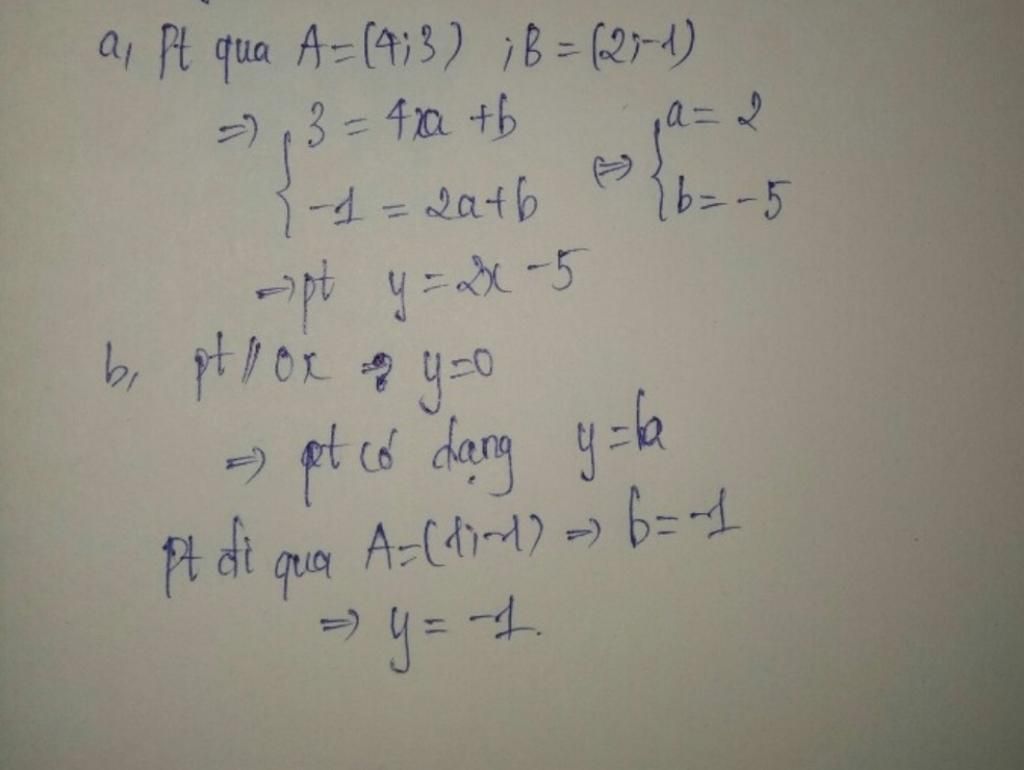 a, Pt qua A=(4;3) ; B=(2;-1)
=> { 3 = 4xa + b <=> { a = 2
-1 = 2a+b b = -5
=> pt y = 2x - 5
b, pt // ox y=0
=> pt có dạng y = b
pt đi qua A=(1;-1) => b = -1
=> y = -1.